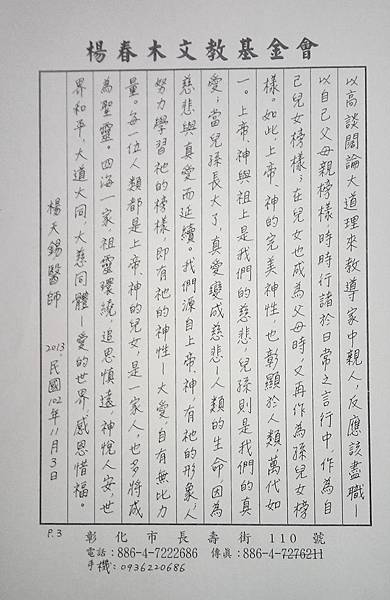 楊春木文教基金會
以高談闊論大道理來教導家中親人,反應該盡職—
以自己父母親榜樣,時時行諸於日常之言行中,作為自
己兒女榜樣;在兒女也成為父母時,又再作為孫兒女榜
樣。如此,上帝、神的完美神性,也彰顯於人類,萬代如
一。上帝、神與祖上是我們的慈悲,兒孫則是我們的真
愛;當兒孫長大了,真愛變成慈悲—人類的生命,因為
慈悲與真愛而延續。我們源自上帝、神,有祂的形象,人
努力學習祂的榜樣,即有祂的神性—大愛,自有無比力
量。每一位人類都是上帝、神的兒女,是一家人,也多將成
為聖靈。四海一家,祖靈環繞,追思慎遠,神悅人安,世
界和平,大道大同,大慈同體—愛的世界,感恩惜福。
楊天錫醫師
2013,民國102年11月3日
P.3
彰化市長壽街110號
電話:886-4-7222686 傳眞:886-4-7276211
手機:0936220686